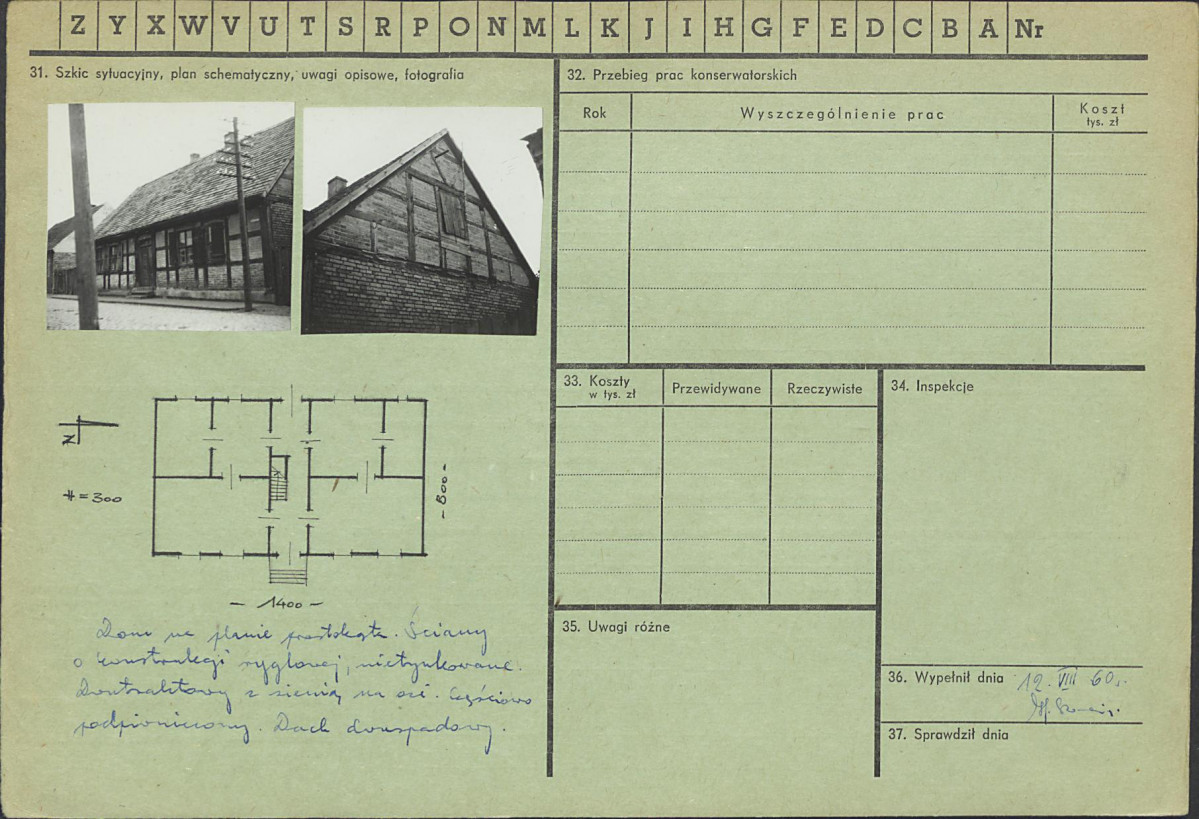 Z Y X W V U T S R P O N M L K J I H G F E D C B A Nr
31. Szkic sytuacyjny, plan schematyczny, uwagi opisowe, fotografia
N
# = 300
- 800 -
- 1400 -
Dom na planie prostokąta. Ściany
o konstrukcji ryglowej, nietynkowane.
Dwutraktowy z sienią na osi. Częściowo
podpiwniczony. Dach dwuspadowy.
32. Przebieg prac konserwatorskich
Rok Wyszczególnienie prac Koszt
tys. zł
33. Koszty
w tys. zł
Przewidywane Rzeczywiste
34. Inspekcje
35. Uwagi różne
36. Wypełnił dnia 12. VIII 60r.
37. Sprawdził dnia